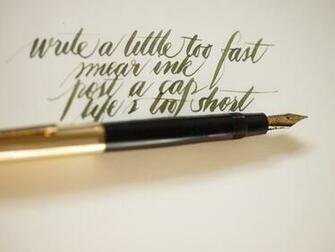 write a little too fast
smear ink
post a cap
life is too short